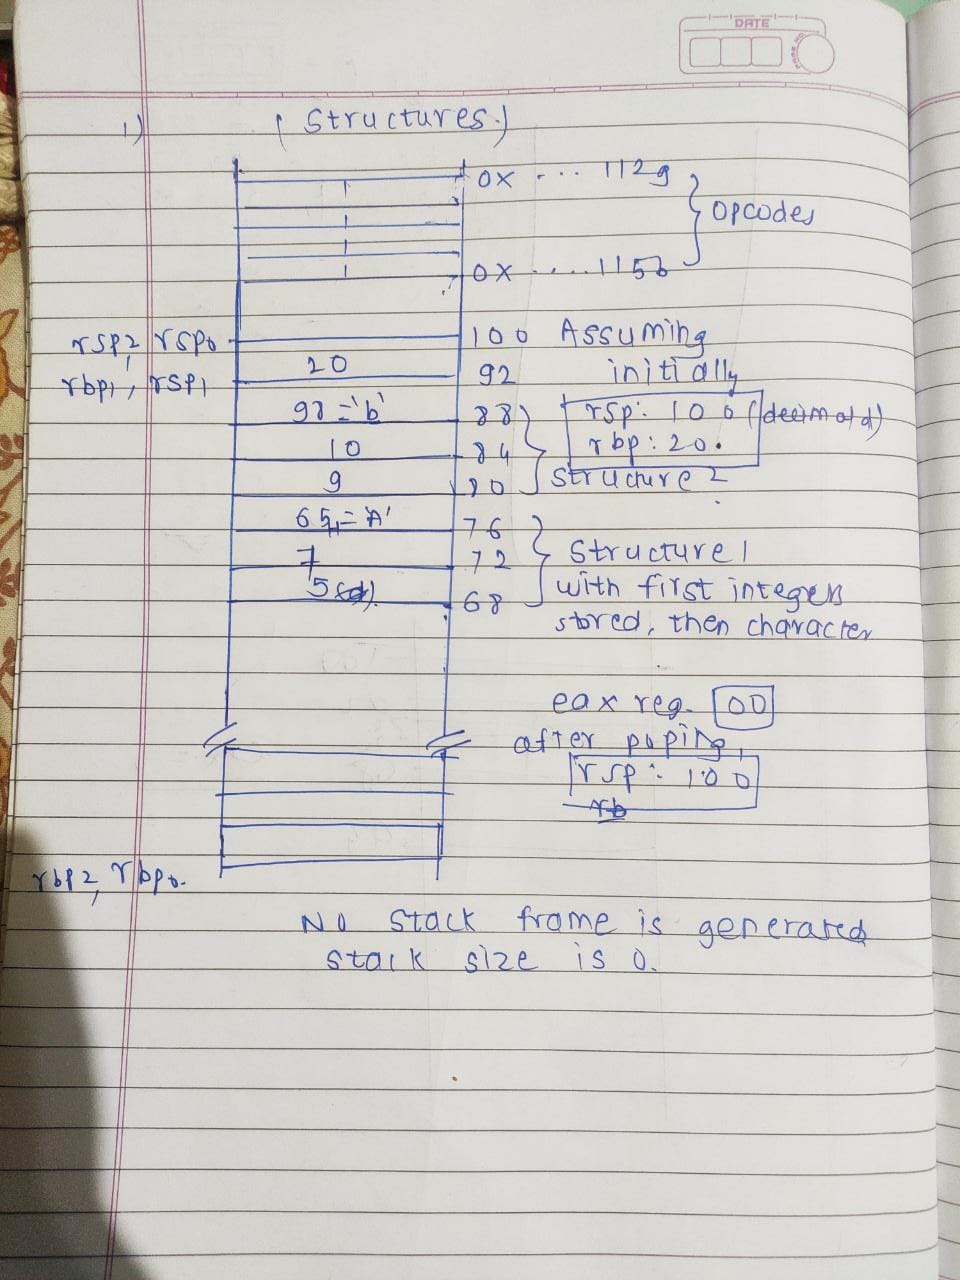 DATE
PAGE NO.
1) ( Structures.)
0x .... 1129
Opcodes
0x .....115b
rsp2, rsp0 100 Assuming
20 initially
rbp1, rsp1 92
98='b' 88 rsp: 100 (decimal)
10 84 rbp: 20.
9 80 structure 2
65='A' 76
7 72 Structure 1
5 68 with first integers
stored, then character
eax reg. 00
after poping,
rsp: 100
rb
rbp2, rbp0.
No stack frame is generated
stack size is 0.